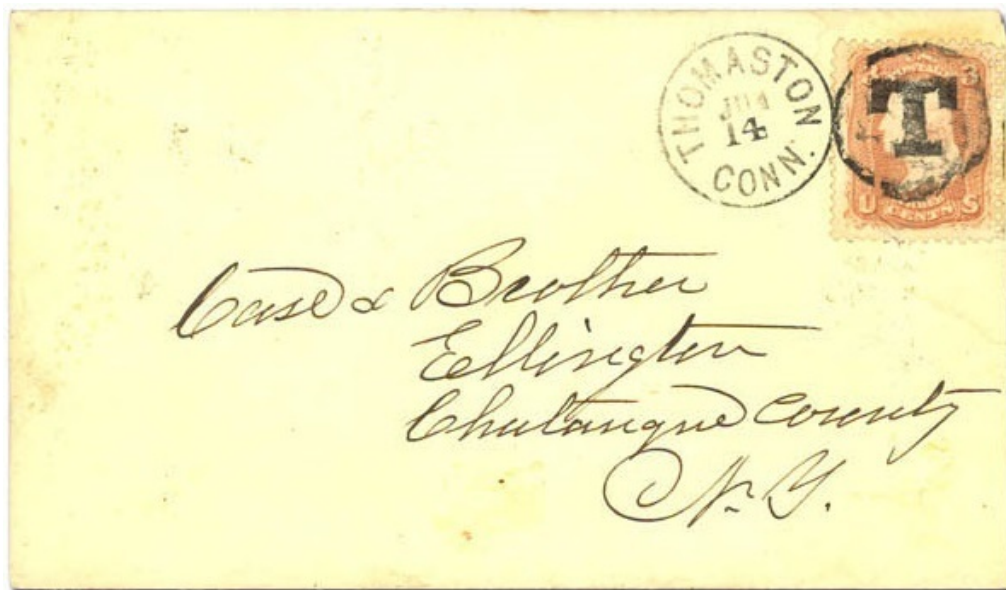 THOMASTON
14
CONN.
T
U S
CENTS
Case & Brother
Ellington
Chutauque County
N. Y.